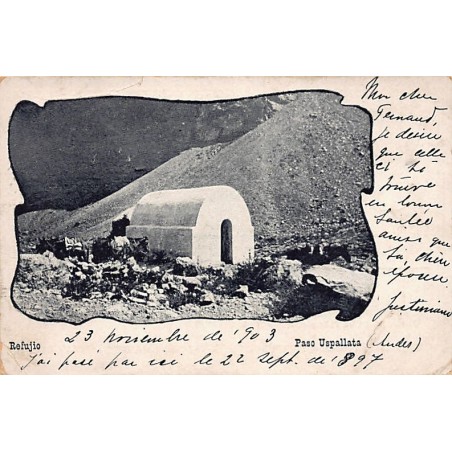 Mon cher
Fernand,
je désire
que celle
ci te
trouve
en bonne
santée
ainsi que
ta chère
épouse,
Justiniano
Refujio
23 Noviembre de 1903
Paso Uspallata
(Andes)
J'ai passé par ici le 22 Sept. de 1897